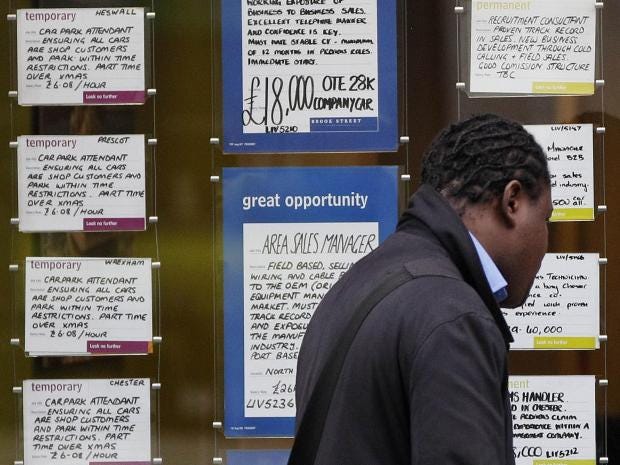 temporary
HESWALL
CAR PARK ATTENDANT
ENSURING ALL CARS
ARE SHOP CUSTOMERS
AND PARK WITHIN TIME
RESTRICTIONS. PART TIME
OVER XMAS
£6.08/HOUR
Look no further
temporary
PRESCOT
CAR PARK ATTENDANT
ENSURING ALL CARS
ARE SHOP CUSTOMERS AND
PARK WITHIN TIME
RESTRICTIONS. PART TIME
OVER XMAS
£6.08/HOUR
Look no further
temporary
WREXHAM
CAR PARK ATTENDANT
ENSURING ALL CARS
ARE SHOP CUSTOMERS
AND PARK WITHIN TIME
RESTRICTIONS. PART TIME
OVER XMAS
£6.08/HOUR
Look no further
temporary
CHESTER
CAR PARK ATTENDANT
ENSURING ALL CARS
ARE SHOP CUSTOMERS
AND PARK WITHIN TIME
RESTRICTIONS. PART
TIME OVER XMAS
£6.08/HOUR
WORKING EXPOSURE OF
BUSINESS TO BUSINESS SALES.
EXCELLENT TELEPHONE MANNER
AND CONFIDENCE IS KEY.
MUST HAVE STABLE CV - MINIMUM
OF 12 MONTHS IN PREVIOUS ROLES.
IMMEDIATE START.
£18,000 OTE 28K
COMPANY CAR
LIV5210
BROOK STREET
great opportunity
AREA SALES MANAGER
FIELD BASED, SELLI
WIRING AND CABLE
TO THE OEM (ORI
EQUIPMENT MAN
MARKET. MUST
TRACK RECORD
AND EXPOSU
THE MANUF
INDUSTRY.
PORT BASE
NORTH
£26K
LIV5236
permanent
RECRUITMENT CONSULTANT
PROVEN TRACK RECORD
IN SALES. NEW BUSINESS
DEVELOPMENT THROUGH COLD
CALLING + FIELD SALES.
GOOD COMISSION STRUCTURE
TBC
MANAGER
B2B
sales
industry.
LIV/5154
TECHNICIAN
proven
experience.
40,000
HANDLER
IN CHESTER.
PREVIOUS CLAIM
EXPERIENCE WITHIN A
COMPANY.
£18,000 LIV5206